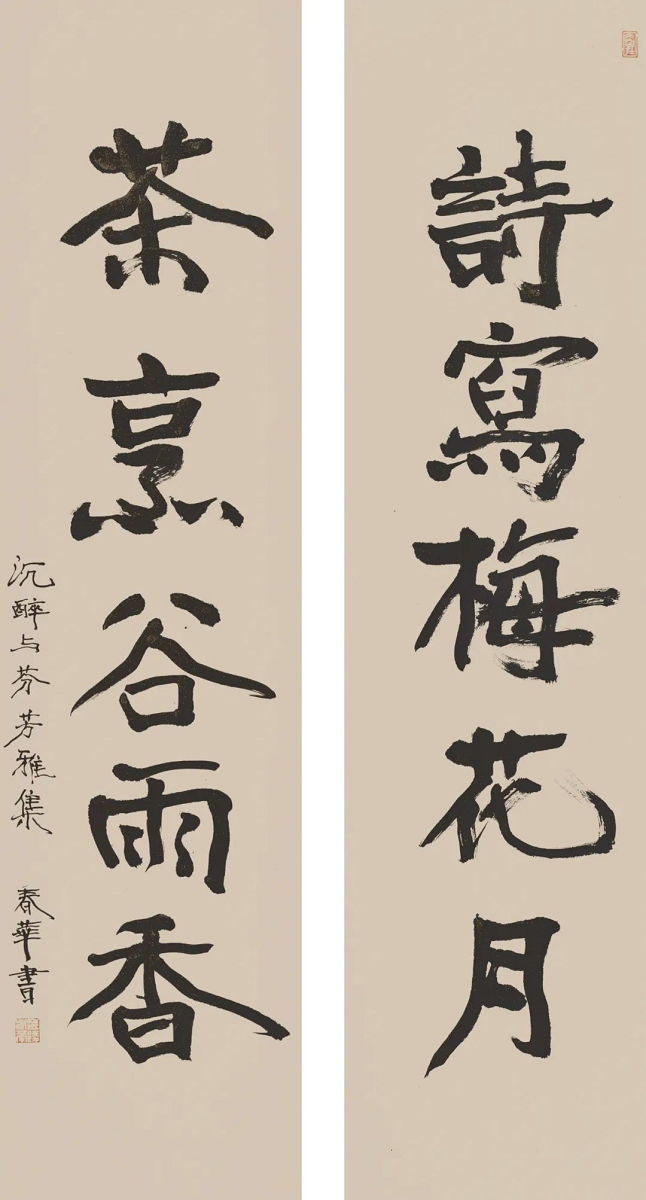 詩寫梅花月
茶烹谷雨香
沉醉与芬芳雅集 春華書